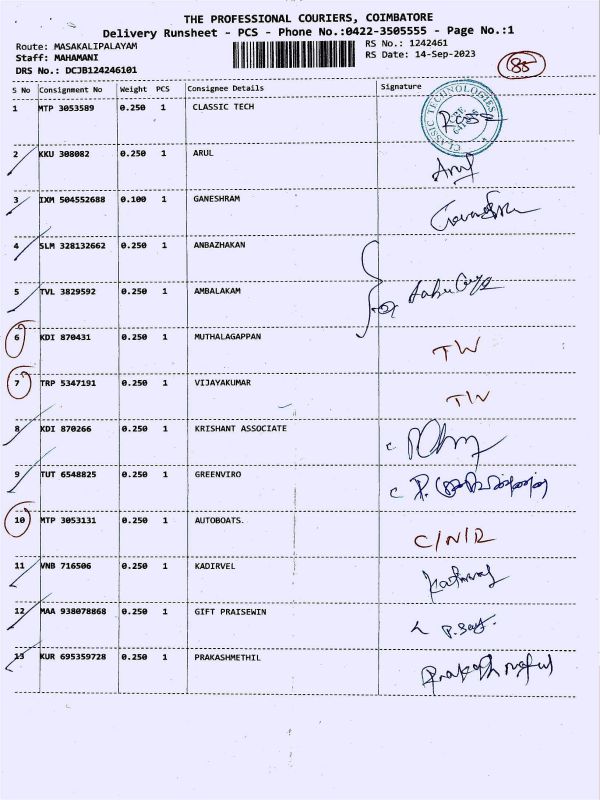 THE PROFESSIONAL COURIERS, COIMBATORE
Delivery Runsheet - PCS - Phone No.:0422-3505555 - Page No.:1
Route: MASAKALIPALAYAM
Staff: MAHAMANI
DRS No.: DCJB124246101
RS No.: 1242461
RS Date: 14-Sep-2023
85
S No Consignment No Weight PCS Consignee Details Signature
1 MTP 3053589 0.250 1 CLASSIC TECH
CLASSIC TECHNOLOGIES
2 KKU 308082 0.250 1 ARUL Arul
3 IXM 504552688 0.100 1 GANESHRAM
4 SLM 328132662 0.250 1 ANBAZHAKAN
5 TVL 3829592 0.250 1 AMBALAKAM
6 KDI 870431 0.250 1 MUTHALAGAPPAN TW
7 TRP 5347191 0.250 1 VIJAYAKUMAR TW
8 KDI 870266 0.250 1 KRISHANT ASSOCIATE
9 TUT 6548825 0.250 1 GREENVIRO
10 MTP 3053131 0.250 1 AUTOBOATS. C/N/R
11 VNB 716506 0.250 1 KADIRVEL
12 MAA 938078868 0.250 1 GIFT PRAISEWIN
13 KUR 695359728 0.250 1 PRAKASHMETHIL